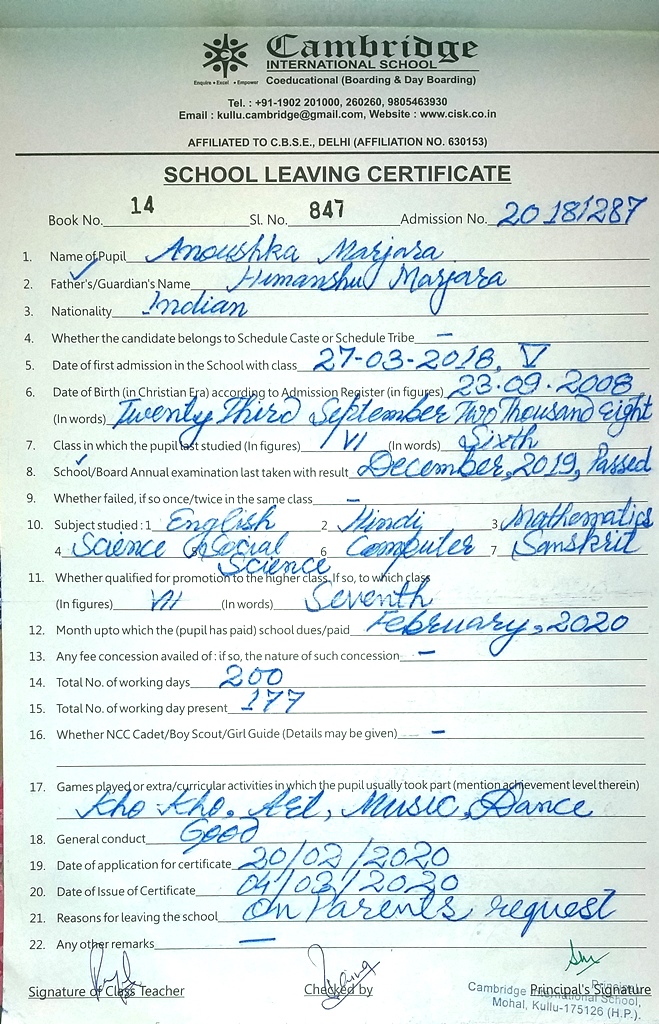 Cambridge
INTERNATIONAL SCHOOL
Enquire • Excel • Empower
Coeducational (Boarding & Day Boarding)
Tel. : +91-1902 201000, 260260, 9805463930
Email : kullu.cambridge@gmail.com, Website : www.cisk.co.in
AFFILIATED TO C.B.S.E., DELHI (AFFILIATION NO. 630153)
SCHOOL LEAVING CERTIFICATE
Book No. 14 Sl. No. 847 Admission No. 20181287
1. Name of Pupil Anoushka Marjara
2. Father's/Guardian's Name Himanshu Marjara
3. Nationality Indian
4. Whether the candidate belongs to Schedule Caste or Schedule Tribe —
5. Date of first admission in the School with class 27-03-2018, V
6. Date of Birth (in Christian Era) according to Admission Register (in figures) 23.09.2008
(In words) Twenty Third September Two Thousand Eight
7. Class in which the pupil last studied (In figures) VI (In words) Sixth
8. School/Board Annual examination last taken with result December, 2019, Passed
9. Whether failed, if so once/twice in the same class —
10. Subject studied : 1 English 2 Hindi 3 Mathematics
4 Science 5 Social Science 6 Computer 7 Sanskrit
11. Whether qualified for promotion to the higher class. If so, to which class
(In figures) VII (In words) Seventh
12. Month upto which the (pupil has paid) school dues/paid February, 2020
13. Any fee concession availed of : if so, the nature of such concession —
14. Total No. of working days 200
15. Total No. of working day present 177
16. Whether NCC Cadet/Boy Scout/Girl Guide (Details may be given) —
17. Games played or extra/curricular activities in which the pupil usually took part (mention achievement level therein)
Kho-Kho. Art, Music, Dance
18. General conduct Good
19. Date of application for certificate 20/02/2020
20. Date of Issue of Certificate 04/03/2020
21. Reasons for leaving the school On Parents request
22. Any other remarks —
Signature of Class Teacher Checked by Principal's Signature
Principal,
Cambridge International School,
Mohal, Kullu-175126 (H.P.).